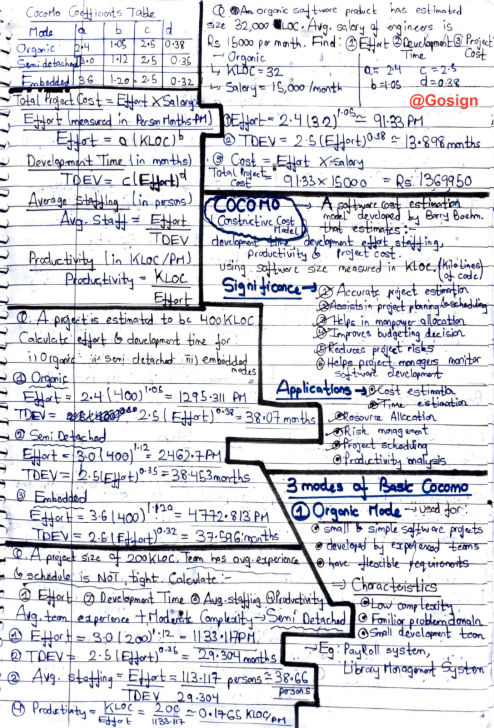 COCOMO Coefficients Table
Mode a b c d
Organic 2.4 1.05 2.5 0.38
Semi detached 3.0 1.12 2.5 0.35
Embedded 3.6 1.20 2.5 0.32
Total Project Cost = Effort X Salary
Effort (measured in Person Months PM)
Effort = a (KLOC)^b
Development Time (in months)
TDEV = c(Effort)^d
Average Staffing (in persons)
Avg. Staff = Effort
TDEV
Productivity (in KLOC/PM)
Productivity = KLOC
Effort
Q. An organic software product has estimated
size 32,000 LOC. Avg. salary of engineers is
Rs 15000 per month. Find: ① Effort ② Development Time ③ Project Cost
→ Organic
→ KLOC = 32
→ Salary = 15,000/month
a = 2.4 c = 2.5
b = 1.05 d = 0.38
@Gosign
① Effort = 2.4 (32)^1.05 ≈ 91.33 PM
② TDEV = 2.5 (Effort)^0.38 ≈ 13.898 months
③ Cost = Effort X Salary
Total Project Cost = 91.33 X 15000 = Rs. 1369950
COCOMO → A software cost estimation
(Constrictive Cost Model) model developed by Barry Boehm.
that estimates:-
development effort, staffing,
productivity & project cost.
using software size measured in KLOC. (Kilo lines of code)
Significance → ① Accurate project estimation
② Assists in project planing & scheduling
③ Helps in manpower allocation
④ Improves budgeting decision
⑤ Reduces project risks
⑥ Helps project managers monitor
software development
Applications → ① Cost estimation
② Time estimation
③ Resource Allocation
④ Risk management
⑤ Project scheduling
⑥ Productivity analysis
Q. A project is estimated to be 400 KLOC
Calculate effort & development time for
i) Organic ii) semi detached iii) embedded modes
① Organic
Effort = 2.4 (400)^1.05 = 1295.311 PM
TDEV = 2.5 (Effort)^0.38 = 38.07 months
② Semi Detached
Effort = 3.0 (400)^1.12 2462.7 PM
TDEV = 2.5 (Effort)^0.35 = 38.453 months
③ Embedded
Effort = 3.6 (400)^1.20 = 4772.813 PM
TDEV = 2.5 (Effort)^0.32 = 37.596 months
Q. A project size of 200 KLOC. Team has avg. experience
& schedule is NOT tight. Calculate:-
① Effort ② Development Time ③ Avg. staffing ④ Productivity
Avg. team experience + Moderate Complexity → Semi Detached
① Effort = 3.0 (200)^1.12 = 1133.117 PM
② TDEV = 2.5 (Effort)^0.35 = 29.304 months
③ Avg. staffing = Effort = 1133.117 persons ≈ 38.66 persons
TDEV 29.304
④ Productivity = KLOC = 200 ≈ 0.1765 KLOC/PM
Effort 1133.117
3 modes of Basic Cocomo
① Organic Mode → used for:
① small & simple software projects
② developed by experienced teams
③ have flexible requirements
→ Characteristics
① Low complexity
② Familiar problem domain
③ Small development team
→ Eg: Payroll system,
Library Management System